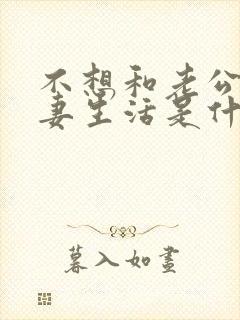 不想和老公
妻生活是什
暮入如画